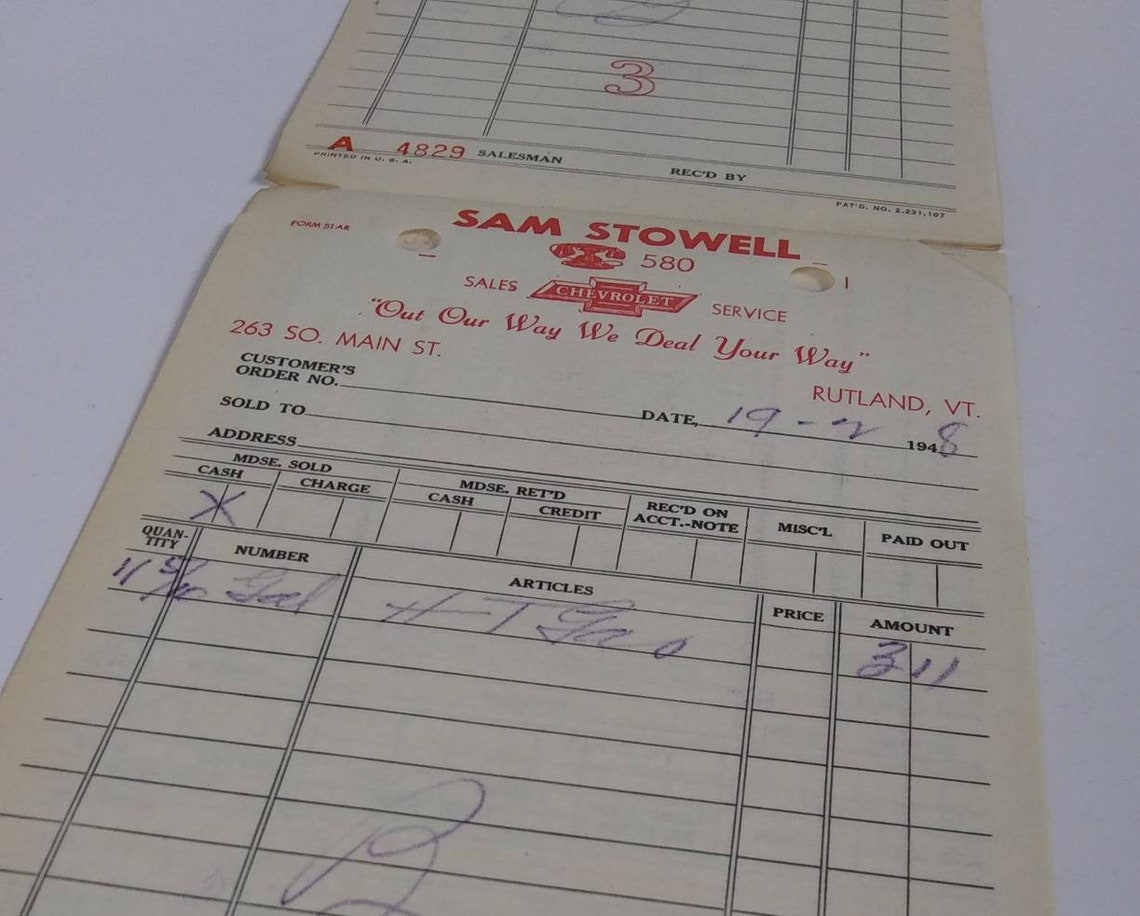 3
A 4829 SALESMAN
REC'D BY
PRINTED IN U. S. A.
PAT'D. NO. 2,231,107
FORM 51 AR
SAM STOWELL
580
SALES CHEVROLET SERVICE
"Out Our Way We Deal Your Way"
263 SO. MAIN ST.
RUTLAND, VT.
CUSTOMER'S
ORDER NO.
DATE, 19 - 2 1948
SOLD TO
ADDRESS
MDSE. SOLD MDSE. RET'D REC'D ON ACCT.-NOTE MISC'L PAID OUT
CASH CHARGE CASH CREDIT
X
QUAN-TITY NUMBER ARTICLES PRICE AMOUNT
11 Gal H-T Gas 3 11